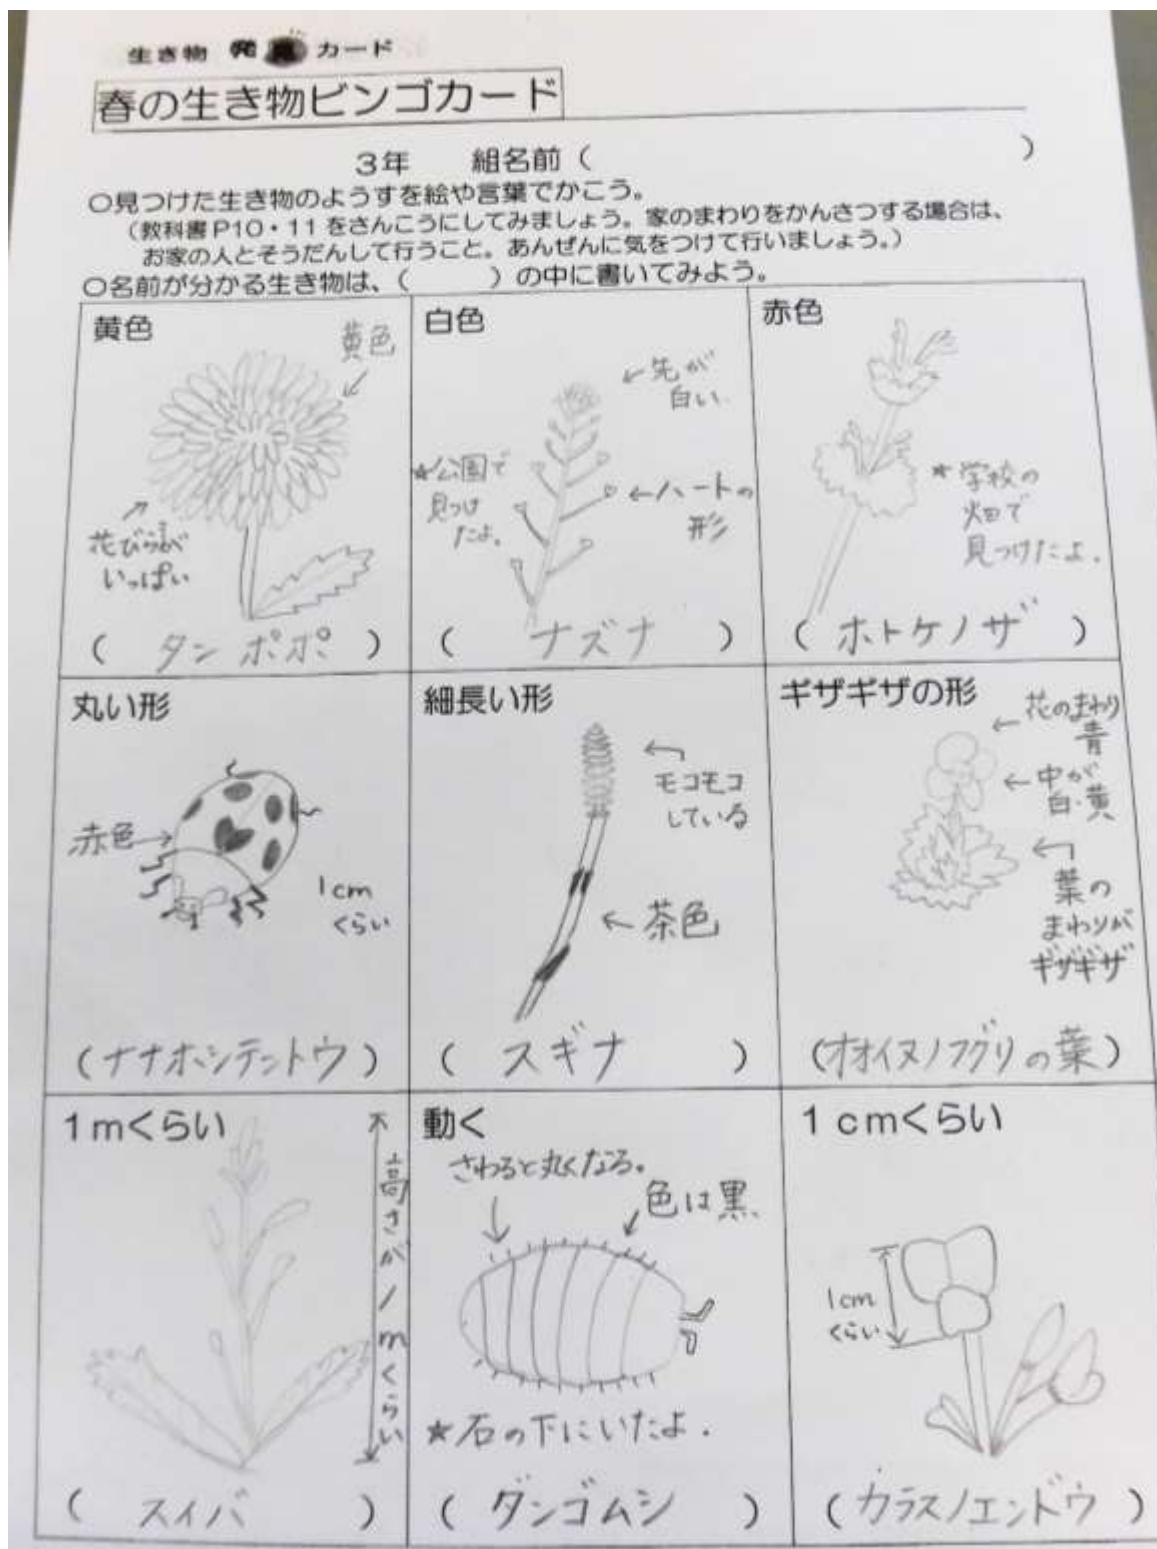 生き物 発見 カード
春の生き物ビンゴカード
3年 組名前（ ）
○見つけた生き物のようすを絵や言葉でかこう。
（教科書P10・11をさんこうにしてみましょう。家のまわりをかんさつする場合は、
お家の人とそうだんして行うこと。あんぜんに気をつけて行いましょう。）
○名前が分かる生き物は、（ ）の中に書いてみよう。
黄色
黄色
花びらが
いっぱい
（タンポポ）
白色
先が
白い
★公園で
見つけ
たよ。
ハートの
形
（ナズナ）
赤色
★学校の
畑で
見つけたよ.
（ホトケノザ）
丸い形
赤色
1cm
くらい
（ナナホシテントウ）
細長い形
モコモコ
している
茶色
（スギナ）
ギザギザの形
花のまわり
青
中が
白・黄
葉の
まわりが
ギザギザ
（オオイヌノフグリの葉）
1mくらい
高さが1mくらい
（スイバ）
動く
さわると丸くなる。
色は黒
★石の下にいたよ.
（ダンゴムシ）
1cmくらい
1cm
くらい
（カラスノエンドウ）